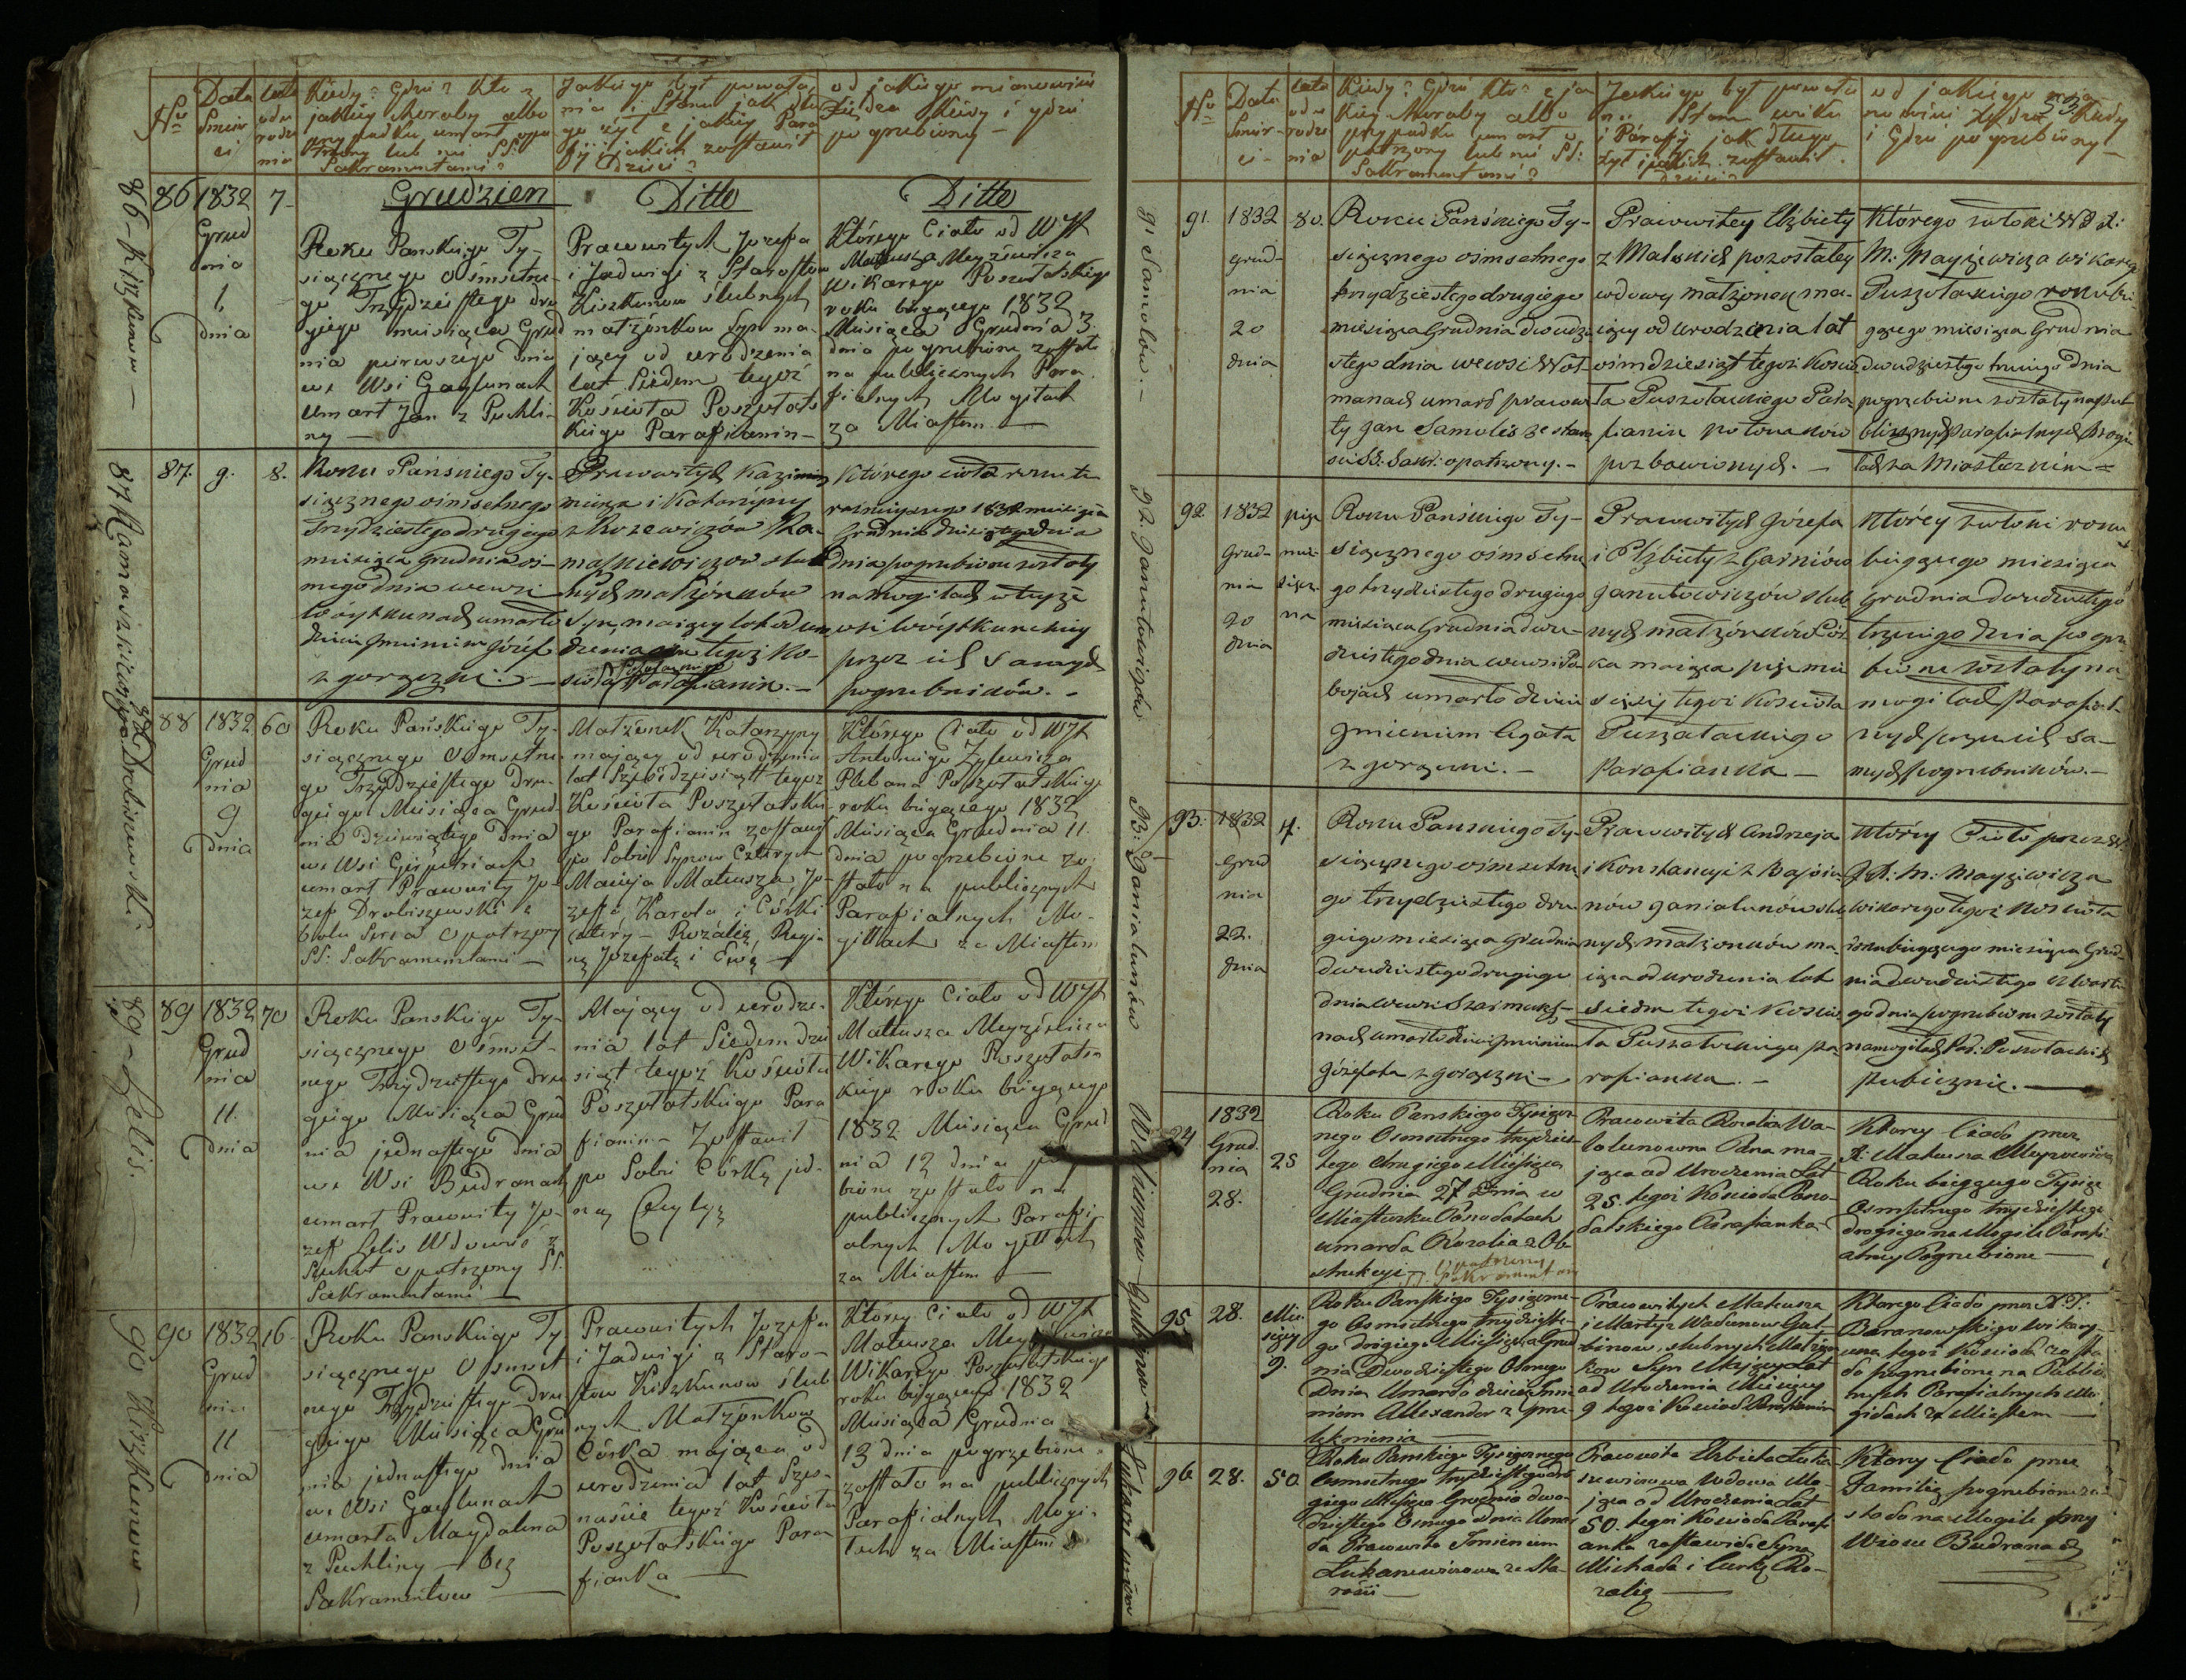 No
Data Śmier ci
Lata od u rodze nia
Kiedy? Gdzie? Kto z
jakiey Choroby albo
przypadku umarł, opa
trzony lub nie SS:
Sakramentami?
Jakiego był powoła
nia i Stanu jak dłu
go żył z jakiey Para
fii i jakich zostawił
Dzieci?
od jakiego mianowicie
Xiędza kiedy i gdzie
pogrzebiony —
86 1832 7-
Grud
nia
1
dnia
Grudzien
Roku Panskiego Ty-
siącznego Osmsetne
go Trzydziestego dru
giego miesiąca Grud
nia pierwszego dnia
we Wsi Gaylunach
umarł Jan z Puchli-
ny —
Ditto
Pracowitych Jozefa
i Jadwigi z Starostow
Kiszkunow ślubnych
małżonkow Syn ma-
jący od urodzenia
lat Siedem tegoż
Kościoła Poszołats
kiego Parafianin —
Ditto
Którego Ciało od WJX
Mateusza Meyżewicza
Wikarego Poszołatskiego
roku bieżącego 1832
Miesiąca Grudnia 3.
dnia pogrzebione zosta
na publicznych Para
fialnych Mogiłach
za Miastem —
86 - Kiszkunow —
87. 9. 8.
Roku Pańskiego Ty-
siącznego osmsetnego
Trzydziestego drugiego
miesiąca Grudnia os-
mego dnia we wsi
Woytkunach umarło
dziecie Jmieniem Józef
z gorączki. —
Pracowitych Kazimie
mierza i Katarzyny
z Rozewiczów Ra-
maszkiewiczow ślub
nych małżonków
Syn, maiący lat od uro
dzenia ośm tegoż Ko-
ścioła Parafianin. —
Którego ciało roku te
raznieyszego 1832 miesiąca
Grudnia dziesiątego dnia
dnia pogrzebione zostały
na mogiłach w teyże
wsi Woytkunskiey
przez ich samych
pogrzebników. —
87 Ramaszkiewicza
88 1832 60
Grud
nia
9
dnia
Roku Pańskiego Ty-
siącznego Osmsetne
go Trzydziestego Dru-
giego Miesiąca Grud-
nia Dziewiątego Dnia
we Wsi
umarł Pracowity Jo-
zef Drobiszewski z
bolu Serca Opatrzony
SS: Sakramentami —
Małżonek Katarzyny
mający od urodzenia
lat Sześćdziesiątt tegoż
Kościoła Poszołatski
go Parafianin zostawił
po Sobie Synow Czterych
Macieja Mateusza, Jo-
zefa, Karola i Córki
Cztery — Rozalię, Regi-
nę Jozefatę i Ewę —
Którego Ciało od WJX
Antoniego Zylewicza
Plebana Poszołatskiego
roku bieżącego 1832
Miesiąca Grudnia 11.
dnia pogrzebione zo-
stało na publicznych
Parafialnych Mo-
giłlach za Miastem
88 Drobiszewski.
89 1832 70
Grud
nia
11.
dnia
Roku Panskiego Ty-
siącznego Osmset-
nego Trzydziestego dru
giego Miesiąca Grud
nia jednastego dnia
we Wsi Budronach
umarł Pracowity Jo-
zef Lelis Wdowiec z
Suchot opatrzony SS.
Sakramentami —
Mający od urodze-
nia lat Siedemdzie
siąt tegoż Kościoła
Poszołatskiego Para
fianin — Zostawił
po Sobie Córkę jed-
ną Cecylyą
Którego Ciało od WJX
Mateusza Meyżewicza
Wikarego Poszołats
kiego roku bieżącego
1832 Miesiąca Grud
nia 13 dnia po
bione zostało na
publicznych Parafi
alnych Mogiłłach
za Miastem —
89 - Lelis. —
90 1832 16-
Grud
nia
11
dnia
Roku Panskiego Ty
siącznego Osmset
nego Trzydziestego dru
giego Miesiąca Gru
nia jednastego dnia
we Wsi Gaylunach
umarła Magdalena
z Puchliny — bez
Sakramentow —
Pracowitych Jozefa
i Jadwigi z Staro-
stow Kiszkunow ślub
nych Małżonkow
Córka mająca od
urodzenia lat Szes-
naście tegoż Kościoła
Poszołatskiego Para
fianka —
Którey Ciało od WJX
Mateusza Meyżewicza
Wikarego Poszołatskiego
roku bieżącego 1832
Miesiąca Grudnia
13 dnia pogrzebione
zostało na publicznych
Parafialnych Mogi-
łach za Miastem
90 Kiszkunow —
No
Data Śmier- ci-
Lata od u rodze nia
Kiedy? Gdzie Kto? z ja
kiey Choroby albo
przypadku umarł o
patrzony lub nie SS:
Sakramentami?
Jakiego był powoła
nia Stanu wieku
i Parafij jak długo
żył jakich zostawił.
Dzieci?
od jakiego mia
nowicie Xiędza, Kiedy
i Gdzie pogrzebiony —
53
91. 1832 80.
grud-
nia
20
dnia
Roku Pańskiego Ty-
siącznego osmsetnego
trzydziestego drugiego
miesiąca Grudnia dwudzie
stego dnia we wsi Woł-
manach umarł pracowi
ty Jan Samulis ze staro
ści SS. Sakr: opatrzony. —
Pracowitey Elżbiety
z Malskich pozostałey
wdowy małżonek ma-
iący od urodzenia lat
ośmdziesiąt tegoż Koscio
ła Puszołackiego Para-
fianin potomków
pozbawionych. —
Którego zwłoki
M: Mayżewicza wikarego
Puszołackiego roku bie
żącego miesiąca Grudnia
dwudziestego trzeciego Dnia
pogrzebione zostały na pu
blicznych parafialnych mogi
łach za Miasteczkiem =
91 Samolów. —
92. 1832 pięć
Grud- mie-
nia sięcz-
20 na
dnia
Roku Pańskiego Ty-
siącznego ośmsetne
go trzydziestego drugiego
miesiąca Grudnia dwu-
dziestego dnia we wsi Pa
bojach umarło dziecie
Jmieniem Agata
z gorączki. —
Pracowitych Józefa
i Elżbiety z Garniów
Janutowiczów ślub
nych małżonków Cór
ka maiąca pięć mie
sięcy tegoż Kościoła
Puszałackiego
Parafianka —
Którey zwłoki roku
bieżącego miesiąca
Grudnia dwudziestego
trzeciego dnia pogrze
bione zostały na
mogiłach Parafial
nych przez ich sa-
mych pogrzebników. —
92. Janutowiczów
93. 1832 7.
Grud
nia
22.
dnia
Roku Panskiego Ty-
siącznego ośmsetne
go trzydziestego dru
giego miesiąca Grudnia
dwudziestego drugiego
dnia we wsi Szaimuksz-
nach umarło dziecie jmieniem
Józefata z gorączki —
Pracowitych Andrzeja
i Konstancyi z
nów Janialunów ślub
nych małżonków ma
iąca od urodzenia lat
siedm tegoż Koscio
ła Puszałackiego pa
rafianka. —
Którey Ciało przez
M: Mayżewicza
Wikarego tegoż Kościoła
roku bieżącego miesiąca Grud-
nia dwudziestego czwarte
go dnia pogrzebione zostały
na mogiłach Par: Puszołackich
publicznie. —
93. Janialunów
94 1832 25
Grud.
nia
28.
Roku Panskiego Tysiącz
nego Osmsetnego trzydzies
tego drugiego Miesiąca
Grudnia 27 Dnia w
Miasteczku Poszołatach
umarła Rozalia z Ob
strukcyi — Opatrzona
SS. Sakramentami
Pracowita Rozalia Wa-
lolunowna Panna ma-
jąca od Urodzenia Lat
25. tegoż Kościoła Poszo-
łatskiego Parafianka
Ktorey Ciało przez
X: Mateusza Meyżewicza
Roku bieżącego Tysiąc
Osmsetnego trzydziestego
drugiego na Mogile Parafi
alney Pogrzebione —
95 28. Mie-
sięcy
9.
Roku Panskiego Tysiączne-
go Osmsetnego trzydzieste-
go drugiego Miesiąca Grud
nia Dwudziestego Osmego
Dnia Umarło dziecie Imie
niem Alexander z
lęknienia —
Pracowitych Mateusza
i Marty z Waliunow Gul-
binow, slubnych Małżon
kow Syn Mający Lat
od Urodzenia Miesięcy
9 tegoż Kościoła Parafianin
Ktorego Ciało przez X. J:
Baranowskiego wikary
usza tegoż Kościoła zosta
ło pogrzebione na Publicz
nych Parafialnych Mo-
giłach za Miastem —
96 28. 50
Roku Panskiego Tysiącznego
Osmsetnego trzydziestego dru
giego Miesiąca Grudnia dwu-
dziestego Osmego Dnia Umar
ła Pracowita Imieniem
Łukaszewiczowa ze Sta-
rości —
Pracowita Elzbieta Łuka-
szewiczowa Wdowa Ma-
jąca od Urodzenia Lat
50. tegoż Kościoła Parafi
anka zostawiła Syna
Michała i Curkę Ro-
zalię —
Ktorey Ciało przez
Familię pogrzebione zo-
stało na Mogile przy
Wiosce Budronach